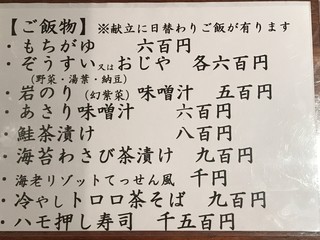 【ご飯物】 ※献立に日替わりご飯が有ります
・もちがゆ 六百円
・ぞうすい又はおじや 各六百円
(野菜・湯葉・納豆)
・岩のり(幻紫菜)味噌汁 五百円
・あさり味噌汁 六百円
・鮭茶漬け 八百円
・海苔わさび茶漬け 九百円
・海老リゾットてっせん風 千円
・冷やしトロロ茶そば 九百円
・ハモ押し寿司 千五百円